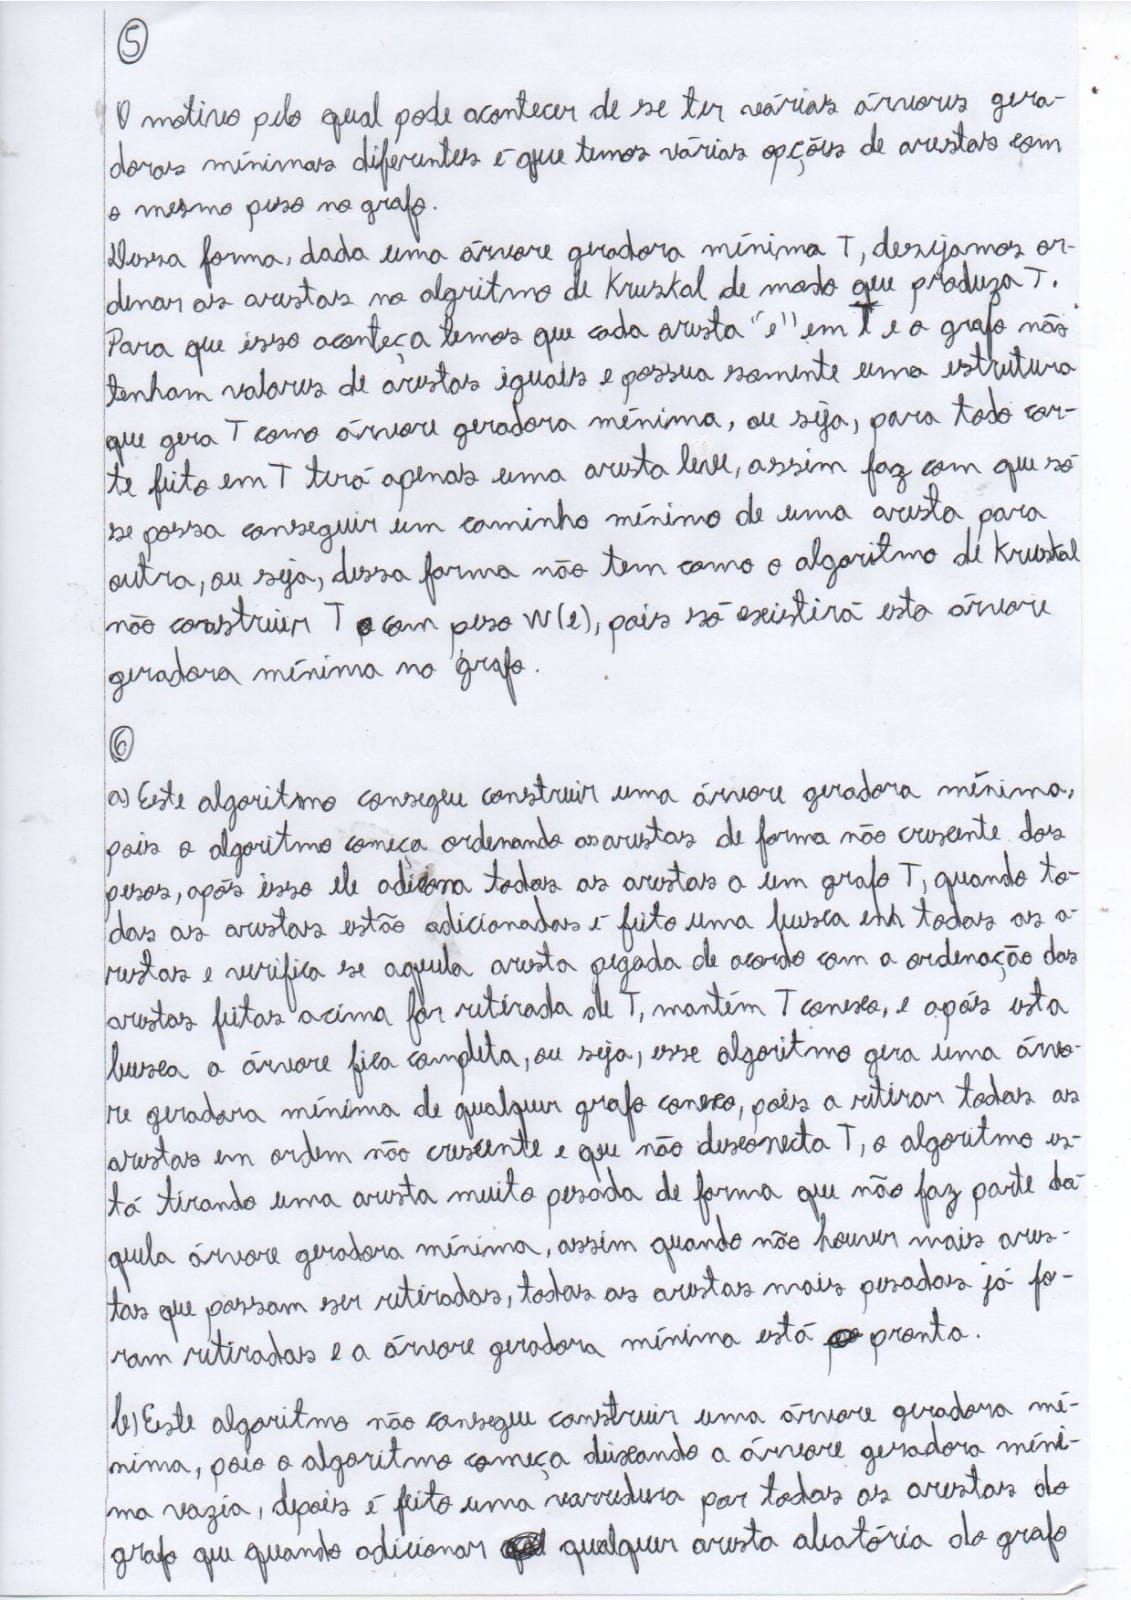 5
O motivo pelo qual pode acontecer de se ter várias árvores gera-
doras mínimas diferentes é que temos várias opções de arestas com
o mesmo peso no grafo.
Dessa forma, dada uma árvore geradora mínima T, desejamos or-
denar as arestas no algritmo de Kruskal de modo que produza T.
Para que isso aconteça temos que cada aresta "e" em T e o grafo não
tenham valores de arestas iguais e possua somente uma estrutura
que gera T como árvore geradora mínima, ou seja, para todo cor-
te feito em T terá apenas uma aresta leve, assim faz com que só
se possa conseguir um caminho mínimo de uma aresta para
outra, ou seja, dessa forma não tem como o algoritmo de Kruskal
não construir T com peso W(e), pois só existirá esta árvore
geradora mínima no grafo.
6
a) Este algoritmo consegue construir uma árvore geradora mínima,
pois o algoritmo começa ordenando as arestas de forma não crescente dos
pesos, após isso ele adiciona todas as arestas a um grafo T, quando to-
das as arestas estão adicionadas é feito uma busca em todas as a-
restas e verifica se aquela aresta pegada de acordo com a ordenação das
arestas feitas acima for retirada de T, mantém T conexo, e após esta
busca a árvore fica completa, ou seja, esse algoritmo gera uma árvo-
re geradora mínima de qualquer grafo conexo, pois a retirar todas as
arestas em ordem não crescente e que não desconecta T, o algoritmo es-
tá tirando uma aresta muito pesada de forma que não faz parte da-
quela árvore geradora mínima, assim quando não houver mais ares-
tas que possam ser retiradas, todas as arestas mais pesadas já fo-
ram retiradas e a árvore geradora mínima está pronta.
b) Este algoritmo não consegue construir uma árvore geradora mí-
nima, pois o algoritmo começa deixando a árvore geradora míni-
ma vazia, depois é feito uma varredura por todas as arestas do
grafo que quando adicionar qualquer aresta aleatória do grafo